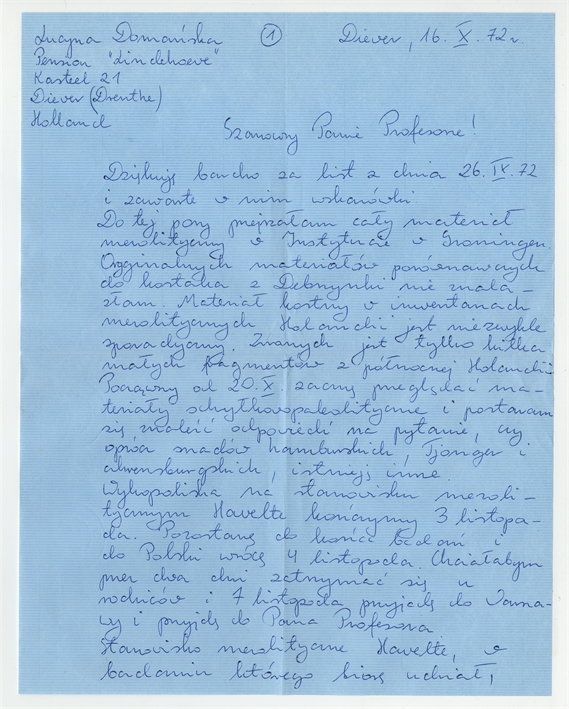 Lucyna Domańska
① Diever, 16. X. 72 r.
Pension "Lindehoeve"
Kasteel 21
Diever (Drenthe)
Holland
Szanowny Panie Profesorze!
Dziękuję bardzo za list z dnia 26. IX. 72
i zawarte w nim wskazówki.
Do tej pory przejrzałam cały materiał
mezolityczny w Instytucie w Groningen.
Orginalnych materiałów porównawczych
do kostaka z Dębrzynki nie znala-
złam. Materiał kostny w inwentarzach
mezolitycznych Holandii jest niezwykle
sporadyczny. Znanych jest tylko kilka
małych fragmentów z północnej Holandii
Począwszy od 20. X zacznę przeglądać ma-
teriały schyłkowopaleolityczne i postaram
się znaleźć odpowiedź na pytanie, czy
oprócz śladów hamburskich, Tjonger i
ahrensburgskich, istnieją inne.
Wykopaliska na stanowisku mezoli-
tycznym Havelte kończymy 3 listopa-
da. Pozostanę do końca badań i
do Polski wrócę 4 listopada. Chciałabym
przez dwa dni zatrzymać się u
rodziców i 7 listopada przyjadę do Warsza-
wy i przyjdę do Pana Profesora.
Stanowisko mezolityczne Havelte, w
badaniu którego biorę udział,